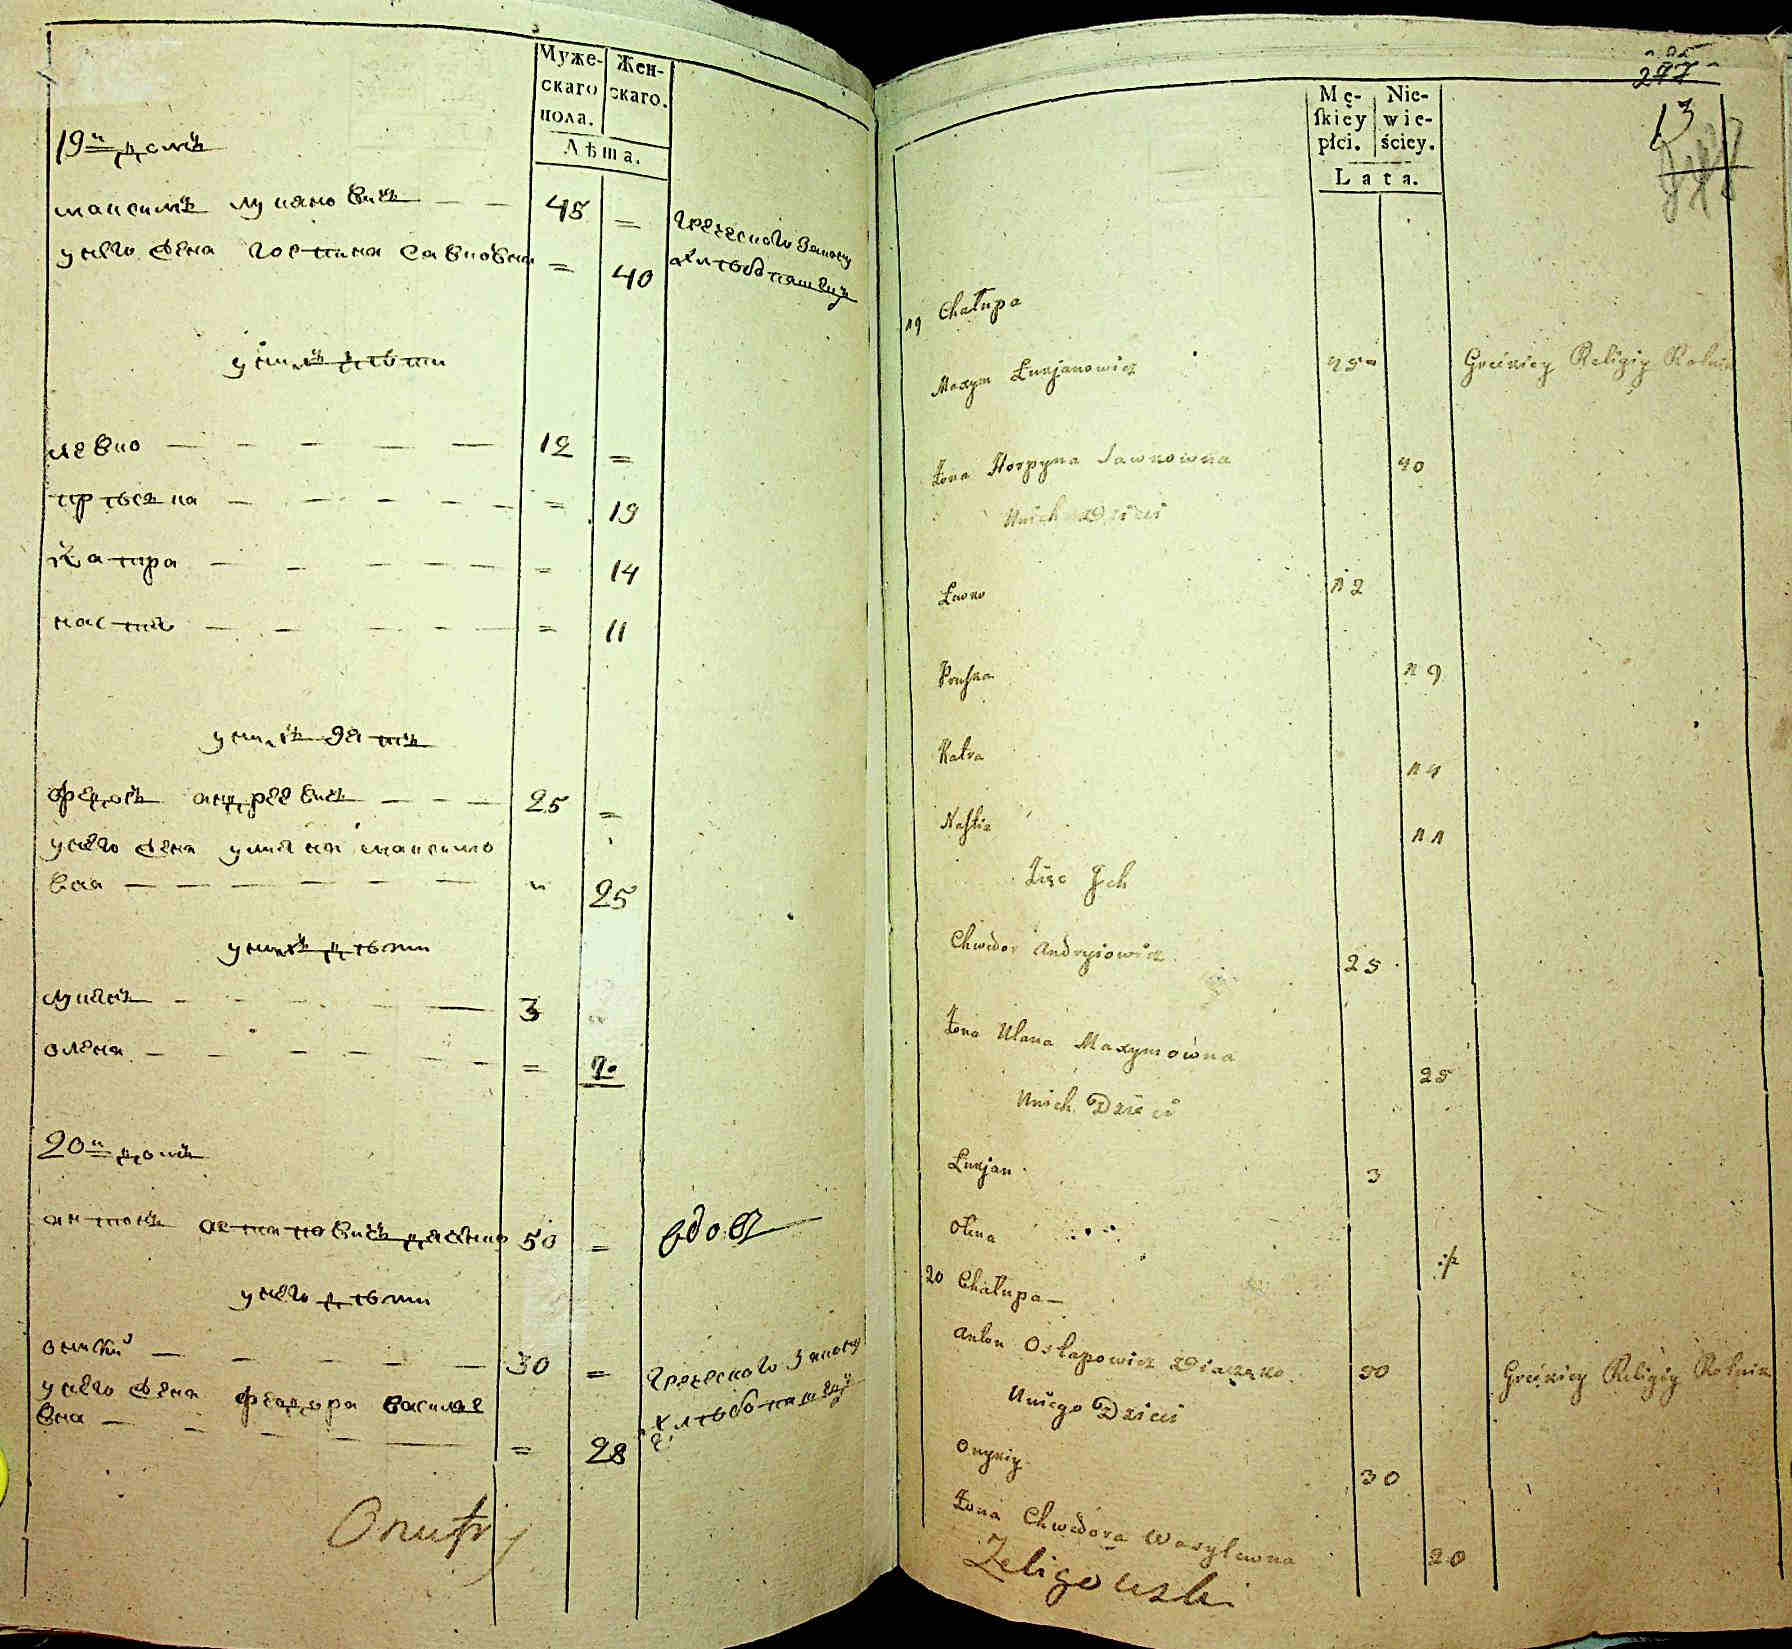 Муже-
скаго
пола.
Жен-
скаго.
Лѣта.
19й домъ
максимъ лукяновичъ — — 45 =
греческого закону
унего жена горпина савковна = 40
хлѣбопашецъ
унихъ дѣти
левко — — — — — 12 =
прѣська — — — — — = 19
катра — — — — — = 14
настя — — — — — = 11
унихъ зять
федоръ андреевичъ — — — 25 =
унего жена уляна максимо
вна — — — — — — 25
унихъ дѣти
лукянъ — — — — 3
олена — — — — — =
20й домъ
антонъ остаповичъ 50 =
вдовъ
унего дѣти
— — — — — 30 =
греческого закону
унего жена феодора василе
хлѣбопашецъ
вна — — — — — = 28
Onufry
Mę-
skiey
płci.
Nie-
wie-
ściey.
Lata.
277
13
19 Chałupa
Maxym Łukjanowicz 45
Greckiey Religiy Rolnik
Żona Horpyna Sawkowna 40
Unich Dzieci
Lewko 12
Pruska 19
Katra 14
Nastia 11
Zięc Ich
Chwedor Andryiowicz 25
Żona Ulana Maxymowna 25
Unich Dzieci
Łukjan 3
Olena
20 Chałupa —
Anton Ostapowicz 50
Greckiey Religiy Rolnik
Uniego Dzieci
30
Żona Chwedora Wasylewna 28
Zeligowski